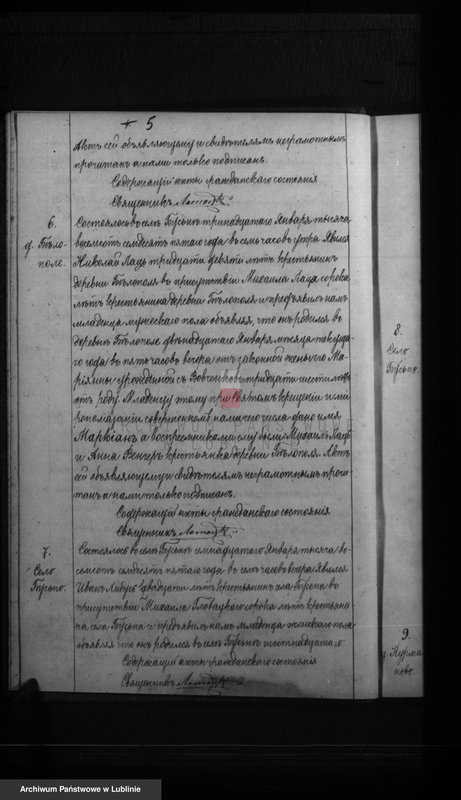 5
Актъ сей объявляющему и свидѣтелямъ неграмотнымъ
прочитанъ а нами только подписанъ.
Содержащій акты гражданскаго состоянія
Священникъ
6.
д. Бѣло-
поле.
Состоялось въ селѣ тринадцатаго Января тысяча
восемьсотъ семдесятъ пятаго года въ семь часовъ утра. Явился
Николай тридцати девяти лѣтъ крестьянинъ
деревни Бѣлополя въ присутствіи Михаила сорока
лѣтъ крестьянина деревни Бѣлополя и предъявилъ намъ
младенца мужескаго пола объявляя, что онъ родился въ
деревнѣ Бѣлополе двѣнадцатаго Января мѣсяца текуща-
го года въ пять часовъ вечера отъ законной жены его Ма-
ріянны урожденной тридцати шести лѣтъ
отъ роду. Младенцу тому при Святомъ крещеніи и мѵ-
ропомазаніи совершенномъ числа дано имя
Маркіанъ а воспреемниками ему были Михаилъ
и Анна Венгеръ крестьянка деревни Бѣлополя. Актъ
сей объявляющему и свидѣтелямъ неграмотнымъ прочи-
танъ а нами только подписанъ.
Содержащій акты гражданскаго состоянія
Священникъ
7.
Село
Состоялось въ селѣ семнадцатаго Января тысяча во-
семьсотъ семдесятъ пятаго года въ семь часовъ вечера явился
Иванъ двадцати лѣтъ крестьянинъ села
присутствіи Михаила сорока лѣтъ крестьяни-
на села и предъявилъ намъ младенца женскаго пола
объявляя что онъ родился въ селѣ шестнадцатаго
Содержащій акты гражданскаго состоянія
Священникъ
8.
Село
9.
д. Курма-
ново.
Archiwum Państwowe w Lublinie